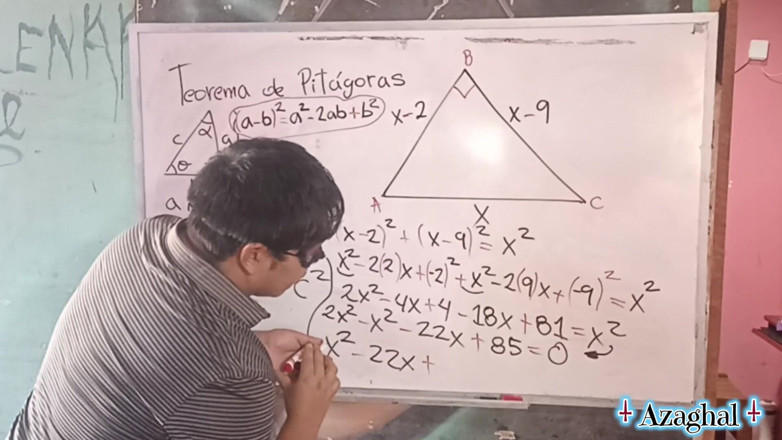 Teorema de Pitágoras
(a-b)²=a²-2ab+b²
c
α
a
θ
a
B
x-2
x-9
A
C
x
(x-2)²+(x-9)²=x²
c²
x²-2(2)x+(-2)²+x²-2(9)x+(-9)²=x²
2x²-4x+4-18x+81=x²
2x²-x²-22x+85=0
x²-22x+
Azaghal